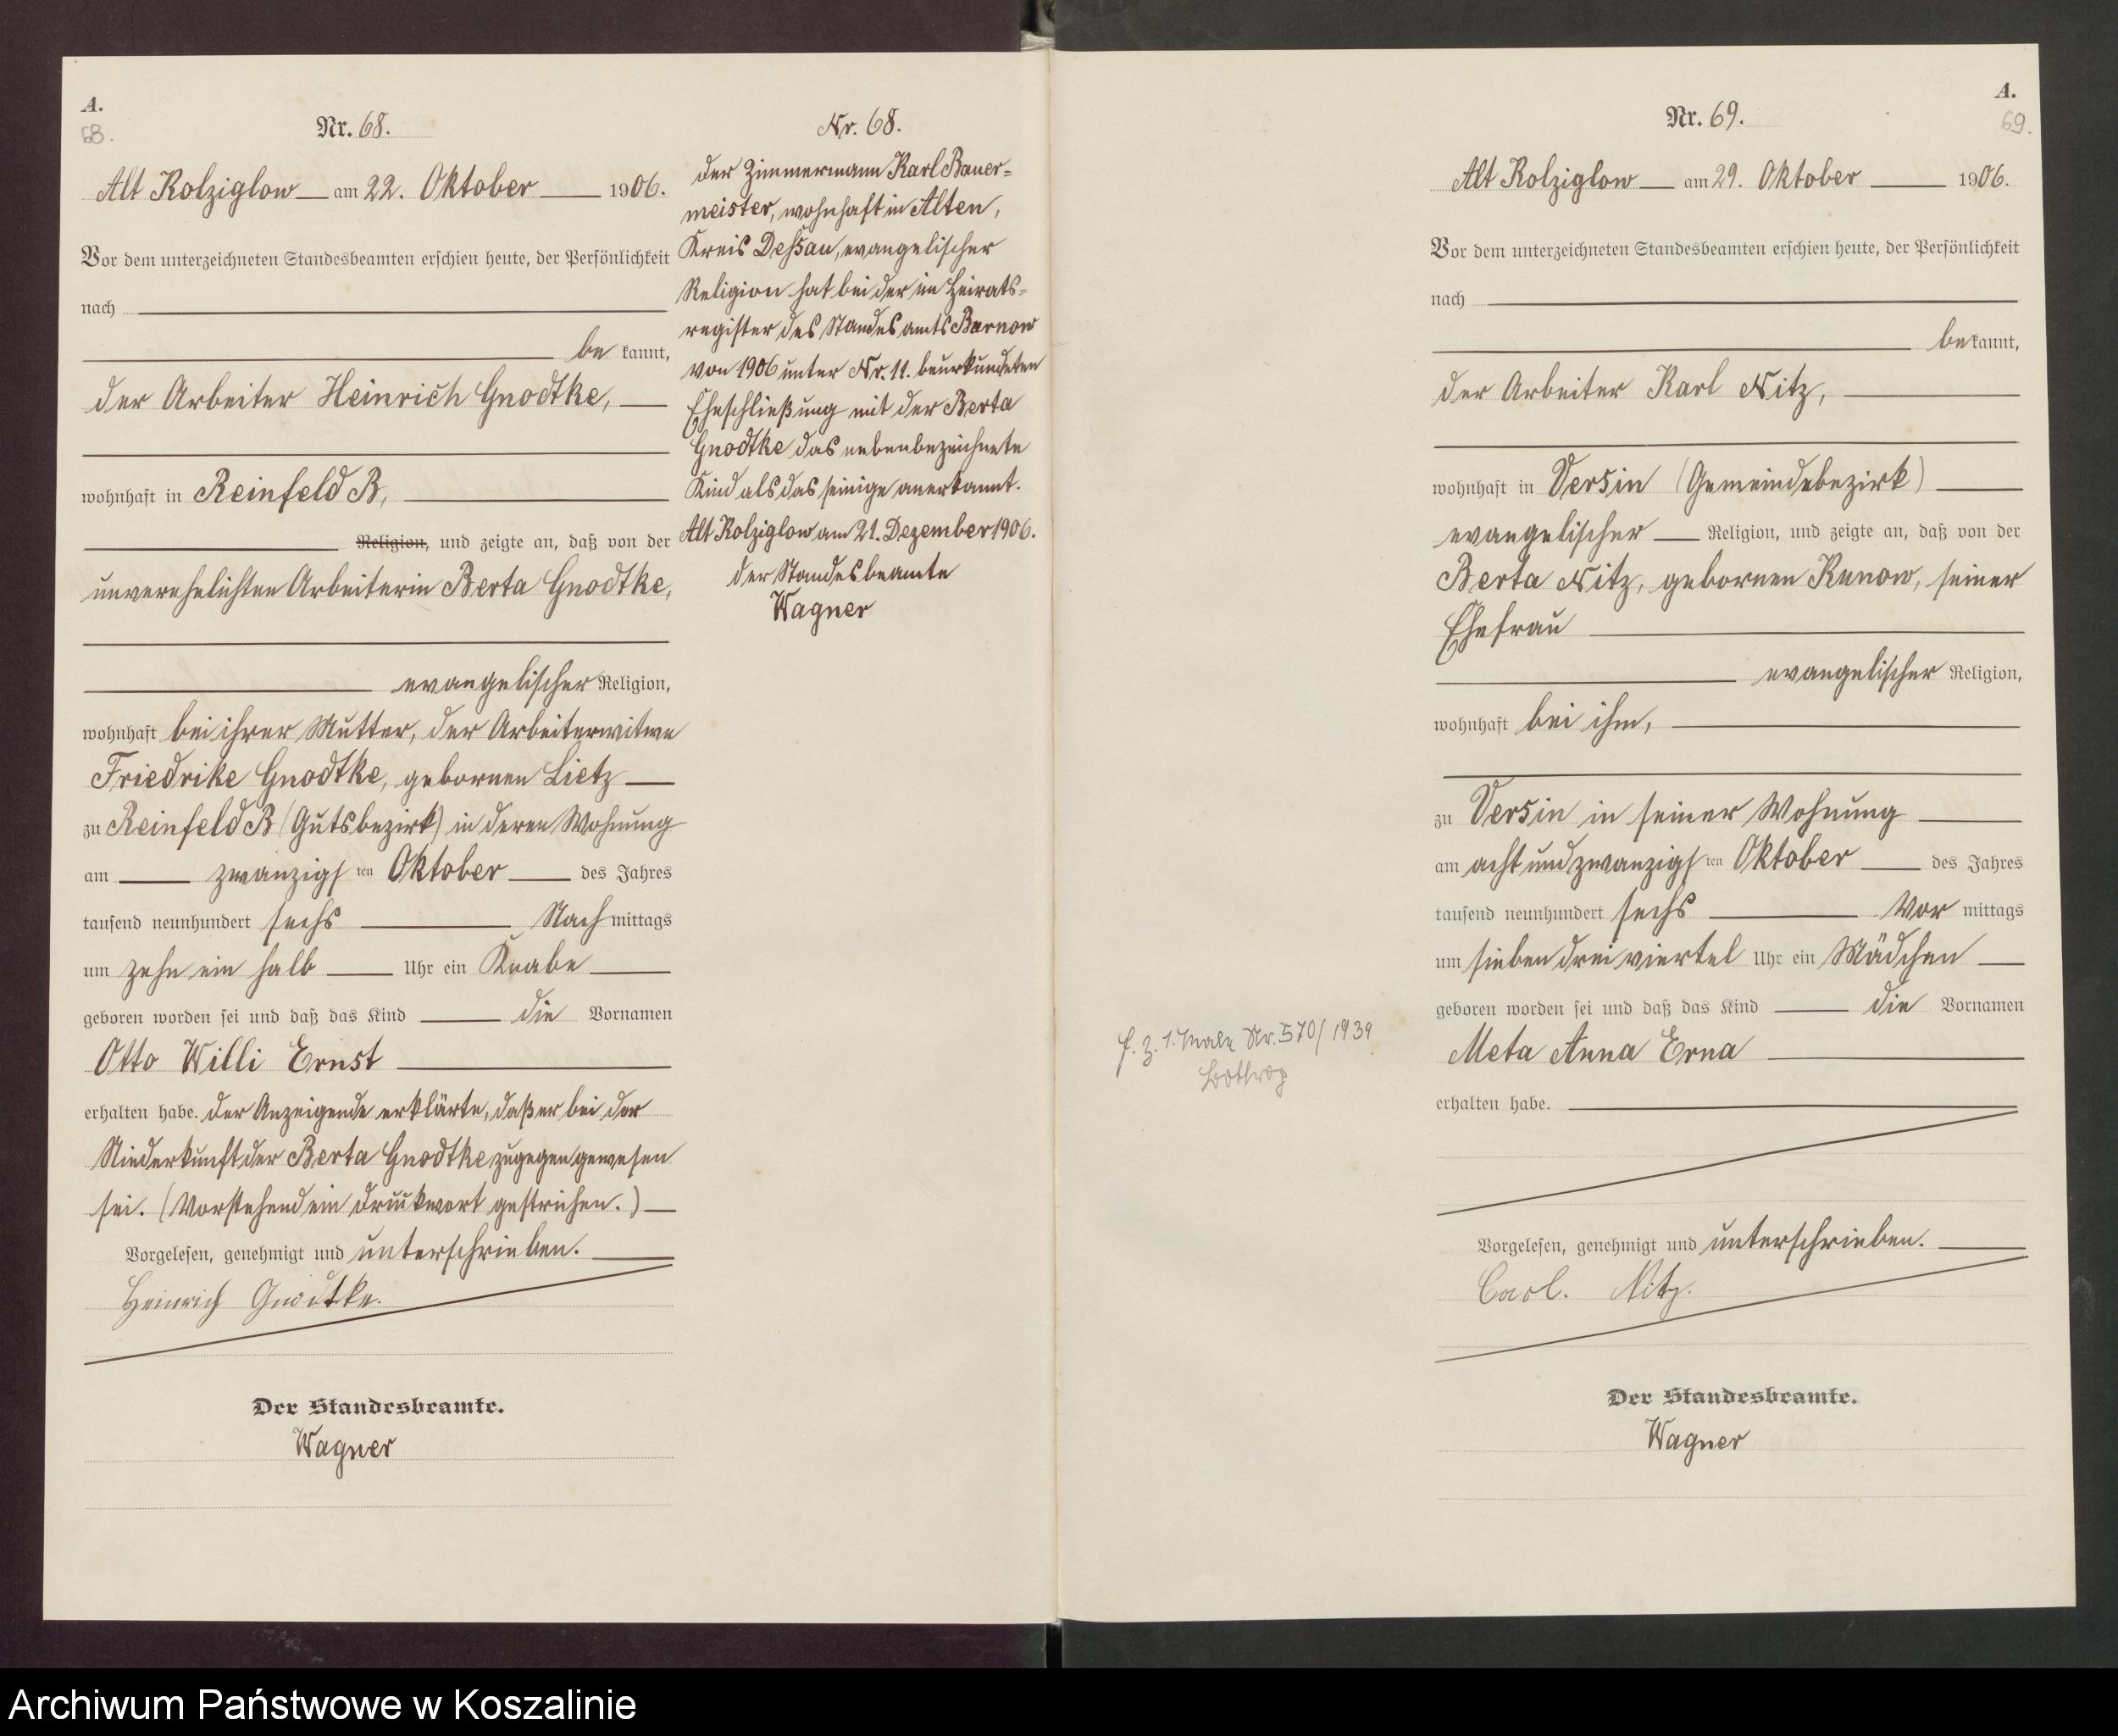 A.
68.
Nr. 68.
Alt Kolziglow am 22. Oktober 1906.
Vor dem unterzeichneten Standesbeamten erschien heute, der Persönlichkeit
nach
be kannt,
der Arbeiter Heinrich Gnodtke,
wohnhaft in Reinfeld B,
Religion, und zeigte an, daß von der
unverehelichten Arbeiterin Berta Gnodtke,
evangelischer Religion,
wohnhaft bei ihrer Mutter, der Arbeiterwitwe
Friedrike Gnodtke, gebornen Lietz
zu Reinfeld B (Gutsbezirk) in deren Wohnung
am zwanzigsten Oktober des Jahres
tausend neunhundert sechs Nach mittags
um zehn ein halb Uhr ein Knabe
geboren worden sei und daß das Kind die Vornamen
Otto Willi Ernst
erhalten habe. Der Anzeigende erklärte, daß er bei der
Niederkunft der Berta Gnodtke zugegen gewesen
sei. (Vorstehend ein Druckwort gestrichen.)
Vorgelesen, genehmigt und unterschrieben.
Heinrich Gnodtke.
Der Standesbeamte.
Wagner
Nr. 68.
Der Zimmermann Karl Bauer=
meister, wohnhaft in Alten,
Kreis Deßau, evangelischer
Religion hat bei der im Heirats=
register des Standesamts Barnow
von 1906 unter Nr. 11. beurkundeten
Eheschließung mit der Berta
Gnodtke das nebenbezeichnete
Kind als das seinige anerkannt.
Alt Kolziglow am 21. Dezember 1906.
Der Standesbeamte
Wagner
A.
69.
Nr. 69.
Alt Kolziglow am 29. Oktober 1906.
Vor dem unterzeichneten Standesbeamten erschien heute, der Persönlichkeit
nach
bekannt,
der Arbeiter Karl Nitz,
wohnhaft in Versin (Gemeindebezirk)
evangelischer Religion, und zeigte an, daß von der
Berta Nitz, gebornen Kunow, seiner
Ehefrau
evangelischer Religion,
wohnhaft bei ihm,
zu Versin in seiner Wohnung
am acht und zwanzigsten Oktober des Jahres
tausend neunhundert sechs Vor mittags
um sieben drei viertel Uhr ein Mädchen
geboren worden sei und daß das Kind die Vornamen
Meta Anna Erna
erhalten habe.
Vorgelesen, genehmigt und unterschrieben.
Carl. Nitz.
Der Standesbeamte.
Wagner
z. 1. Male Nr. 570/1939
Archiwum Państwowe w Koszalinie